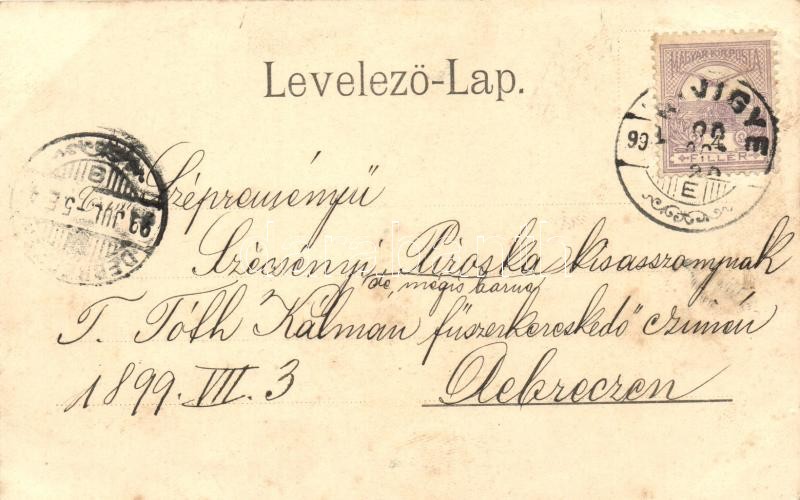 Levelező-Lap.
MAGYAR KIR. POSTA
FILLÉR
99
E
99 JUL. 5.
DEBR
Szépreményű
Szécsényi Piroska kisasszonynak
de mégis barna
T. Tóth Kálmán fűszerkereskedő czimén
1899. VIII. 3
Debreczen